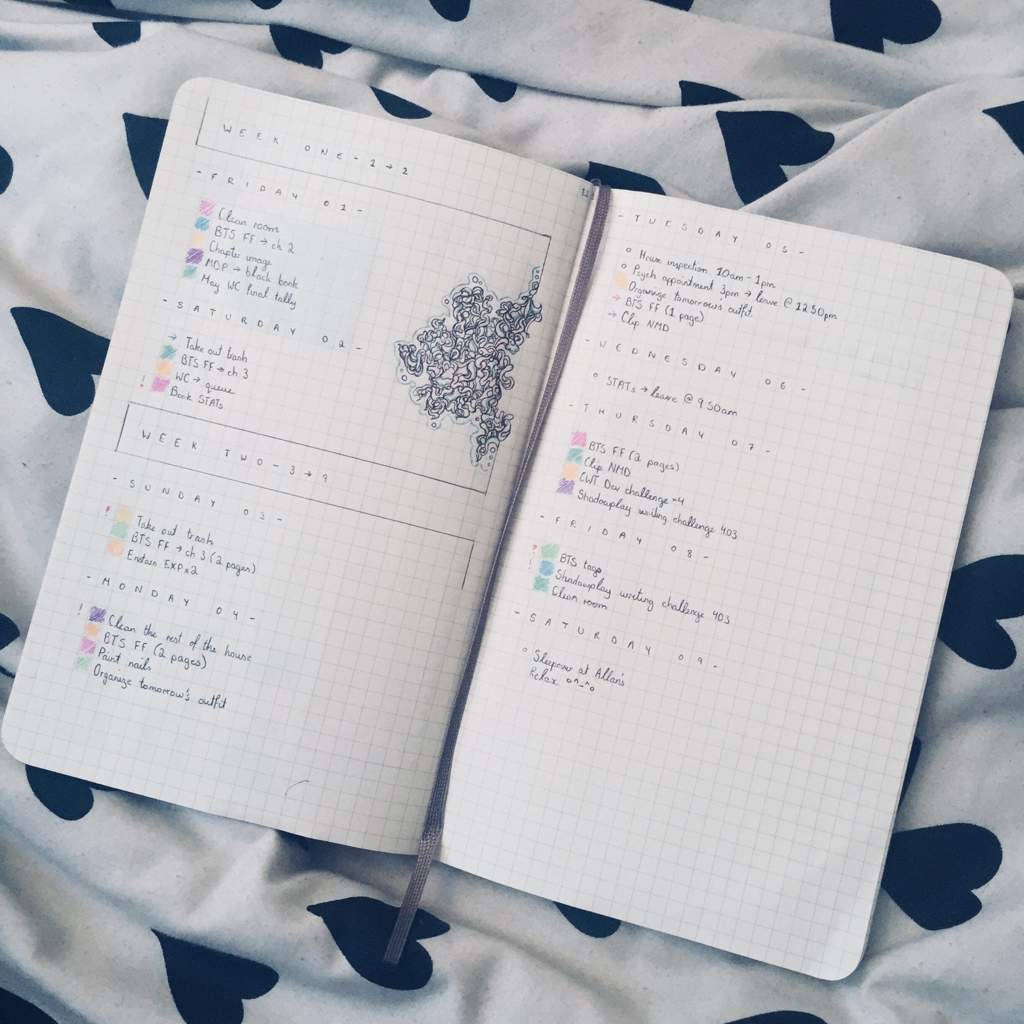 WEEK ONE - 1 → 2
- FRIDAY 01 -
Clean room
BTS FF → ch 2
Chapter image
MDP → black book
May WC final tally
- SATURDAY 02 -
→ Take out trash
BTS FF → ch 3
! WC → queue
! Book STATs
WEEK TWO - 3 → 9
- SUNDAY 03 -
! Take out trash
BTS FF → ch 3 (2 pages)
EXP x2
- MONDAY 04 -
! Clean the rest of the house
BTS FF (2 pages)
Paint nails
Organize tomorrow's outfit
- TUESDAY 05 -
o House inspection 10am - 1pm
o Psych appointment 3pm → leave @ 1250pm
Organize tomorrow's outfit
→ BTS FF (1 page)
→ Clip NMD
- WEDNESDAY 06 -
o STATs → leave @ 950am
- THURSDAY 07 -
BTS FF (2 pages)
Clip NMD
CWT Dev challenge #4
Shadowplay writing challenge 403
- FRIDAY 08 -
! BTS tags
! Shadowplay writing challenge 403
Clean room
- SATURDAY 09 -
o Sleepover at Allan's
Relax o^-^o